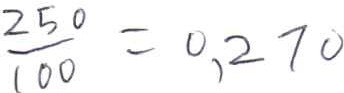 250/100 = 0,270